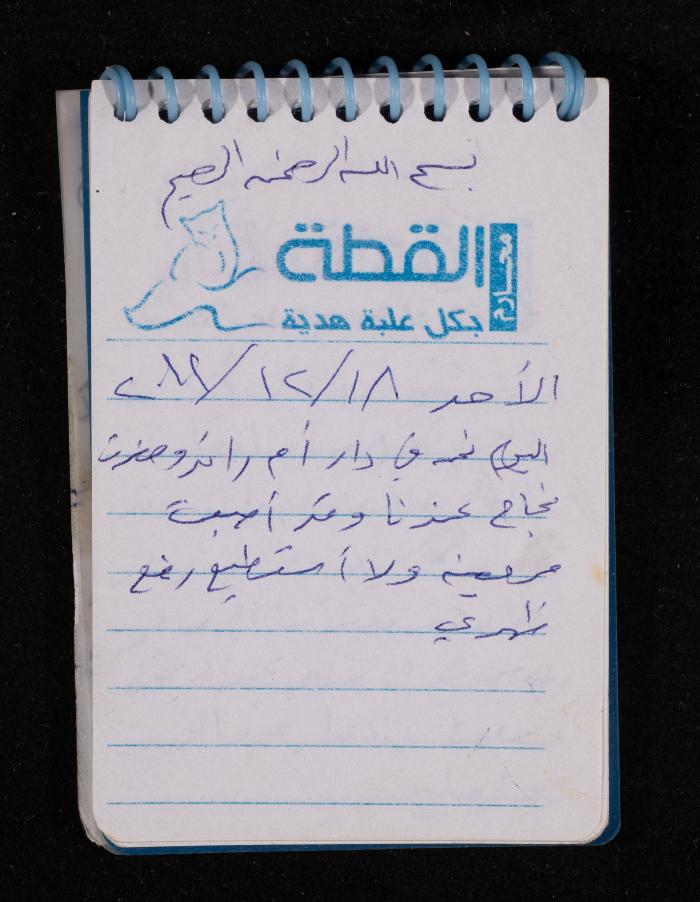 بسم الله الرحمن الرحيم
محارم القطة
بكل علبة هدية
الأحد ١٨/١٢/
اليوم نحن في دار أم رائد وحضرت
نجاح عندنا وقد أصبحت
مريضة ولا أستطيع رفع
ظهري